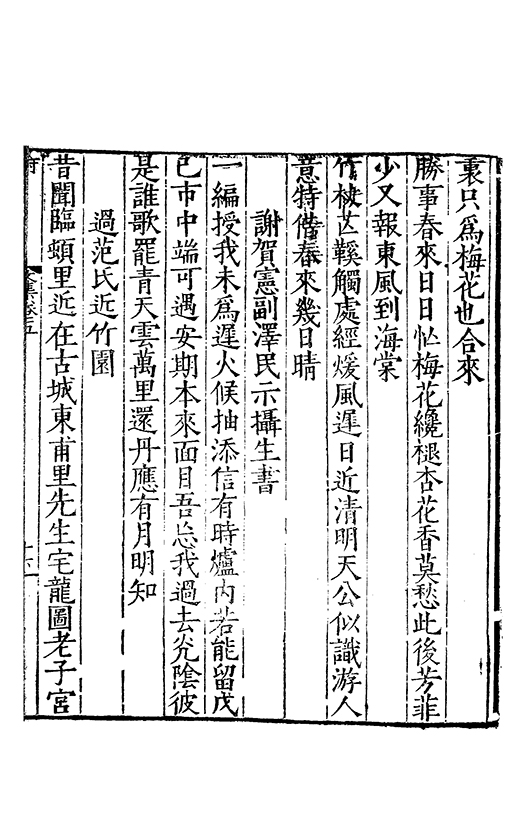 裏只爲梅花也合來
勝事春來日日忙梅花纔褪杏花香莫愁此後芳菲
少又報東風到海棠
竹杖芒鞵觸處經煖風遲日近清明天公似識游人
意特借春來幾日晴
謝賀憲副澤民示攝生書
一編授我未爲遲火候抽添信有時爐內若能留戊
己市中端可遇安期本來面目吾忘我過去光陰彼
是誰歌罷青天雲萬里還丹應有月明知
過范氏近竹園
昔聞臨頓里近在古城東甫里先生宅龍圖老子宮